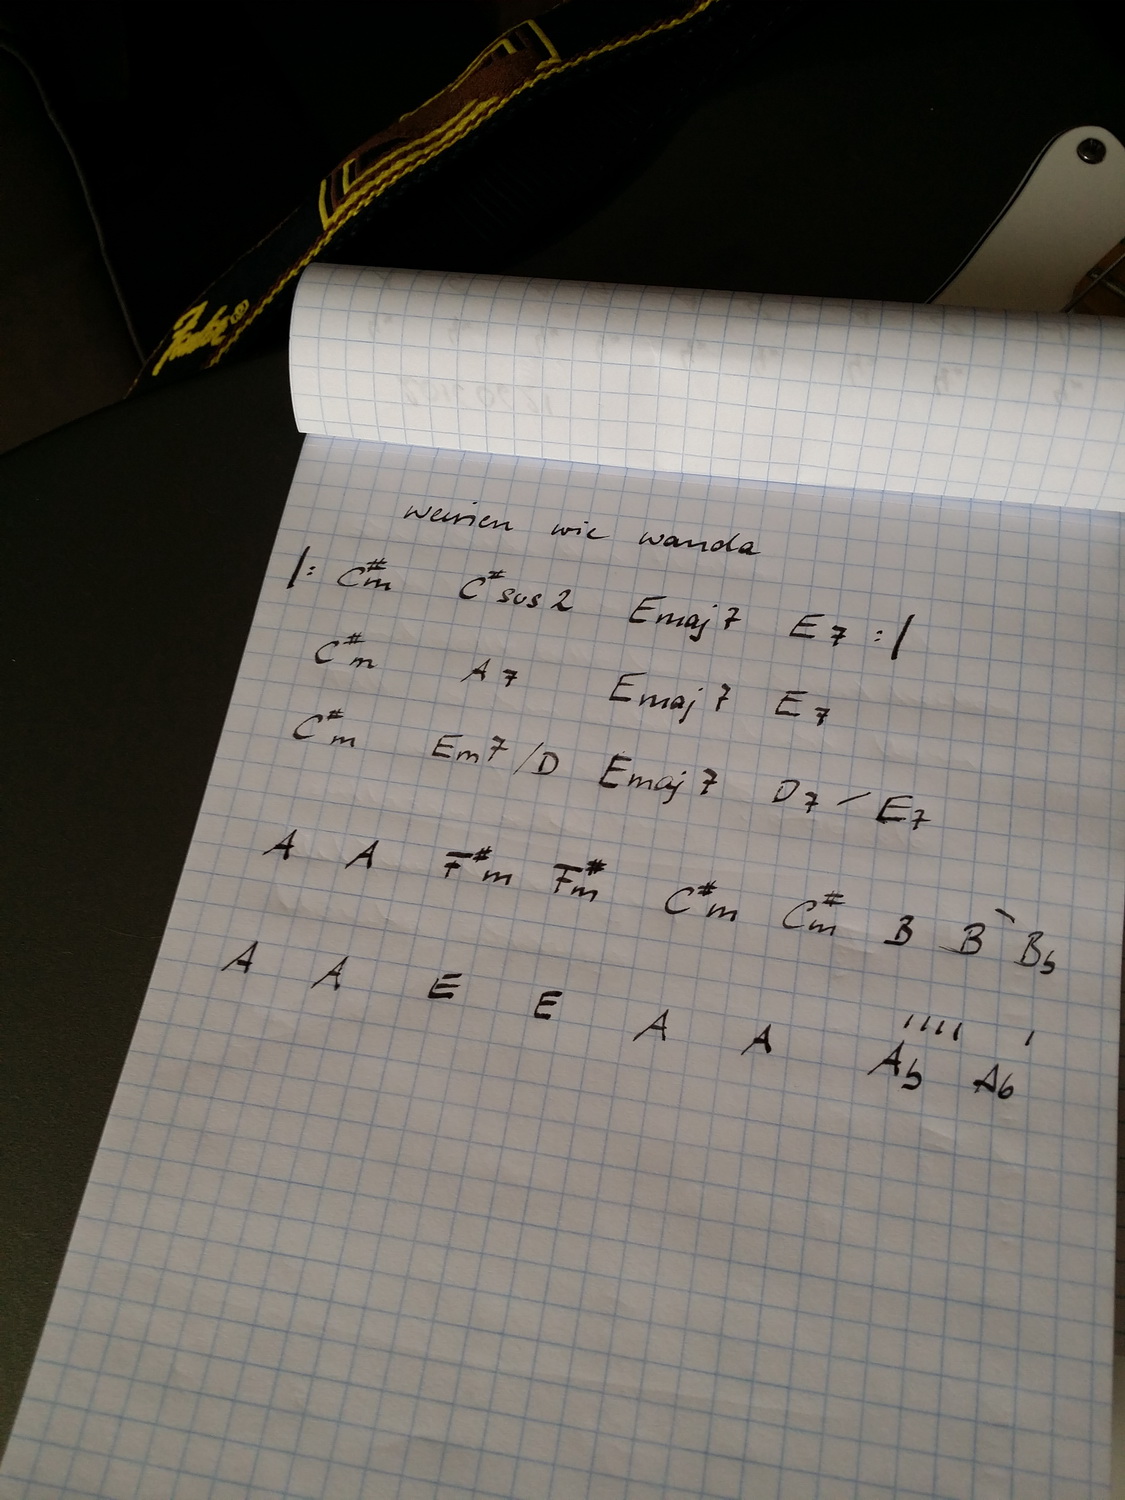 Fender®
weinen wie wanda
|: C#m C#sus2 Emaj7 E7 :|
C#m A7 Emaj7 E7
C#m Em7/D Emaj7 D7 – E7
A A F#m Fm# C#m Cm# B B Bb
A A E E A A Ab Ab